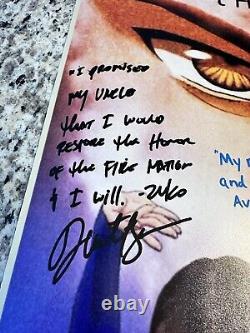 "I PROMISED
MY UNCLE
THAT I WOULD
RESTORE THE HONOR
OF THE FIRE NATION
& I WILL. -ZUKO
"My
and
Av